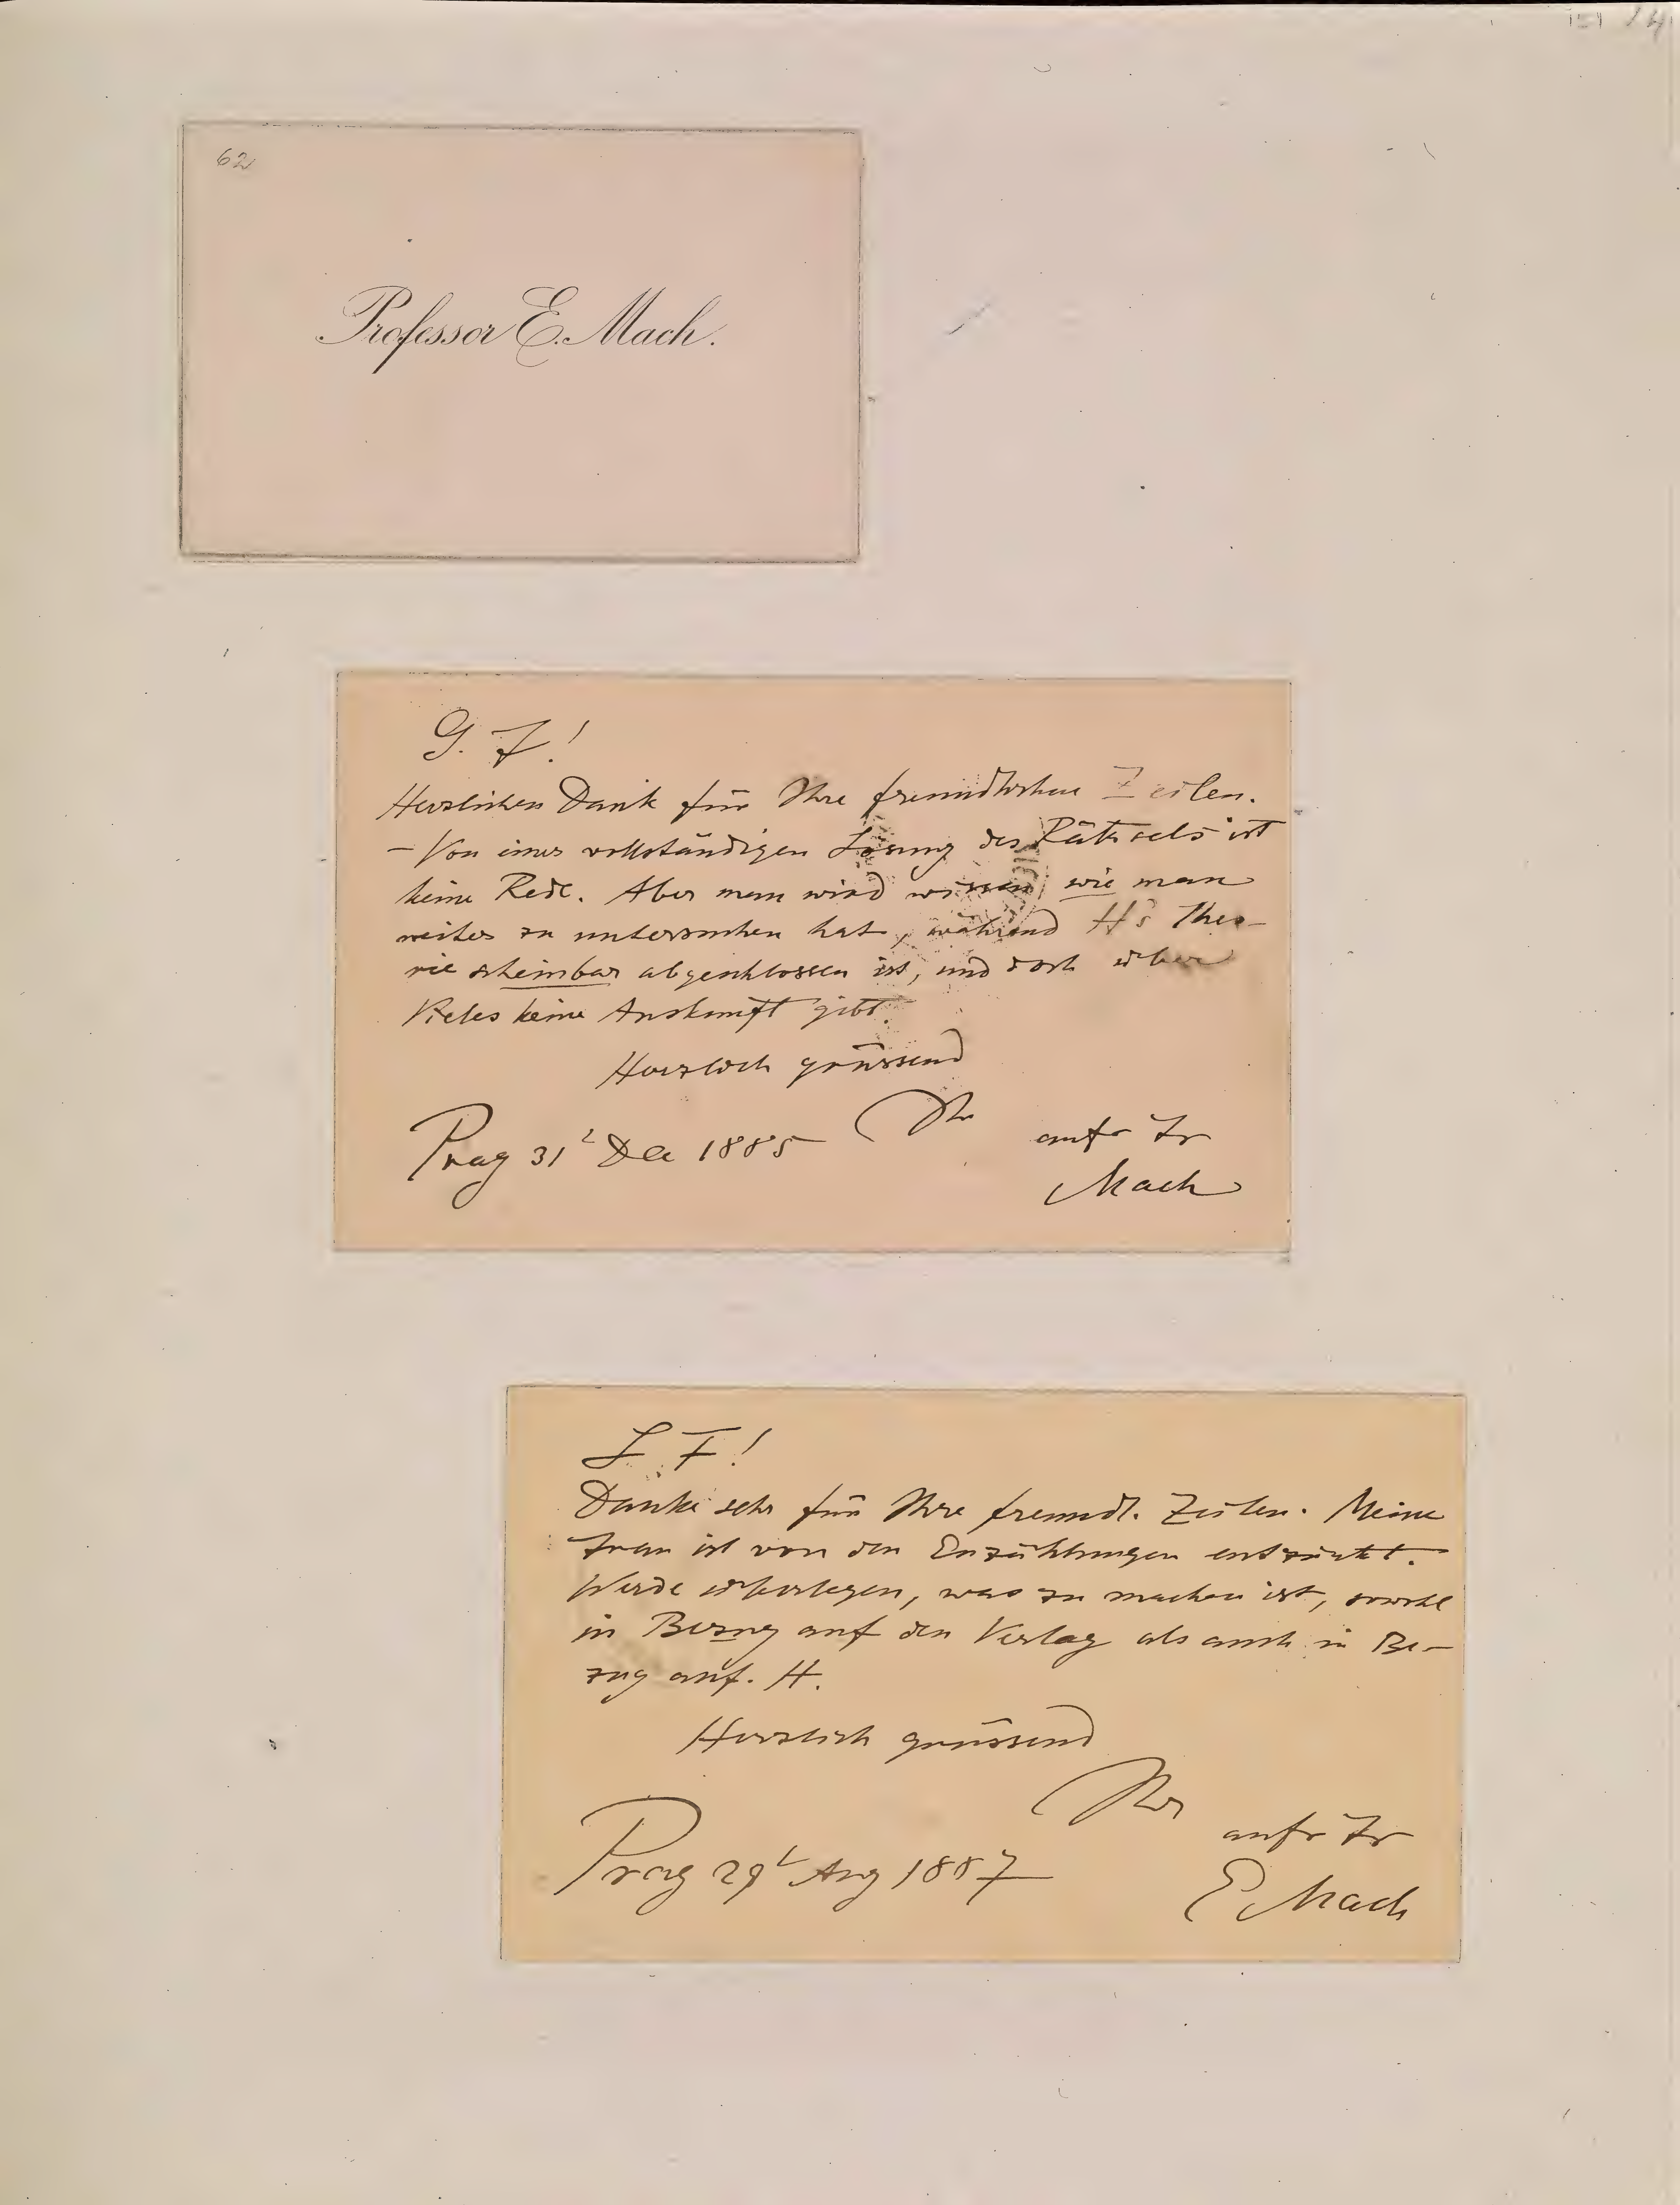 62
Professor E. Mach.
G. F!
Herzlichen Dank für Ihre freundlichen Zeilen.
– Von einer vollständigen Lösung des Rätsels ist
keine Rede. Aber man wird wissen wie man
weiter zu untersuchen hat, während H's Theo–
rie scheinbar abgeschlossen ist, und doch über
Vieles keine Auskunft gibt.
Herzlich grüssend
Ihr
Prag 31t Dec 1885
aufr Fr
Mach
L F!
Danke sehr für Ihre freundl. Zeilen. Meine
Frau ist von den Erzählungen entzückt.
Werde überlegen, was zu machen ist, sowohl
in Bezug auf den Verlag als auch in Be–
zug auf. H.
Herzlich grüssend
Ihr
aufr Fr
Prag 29t Aug 1887
E Mach